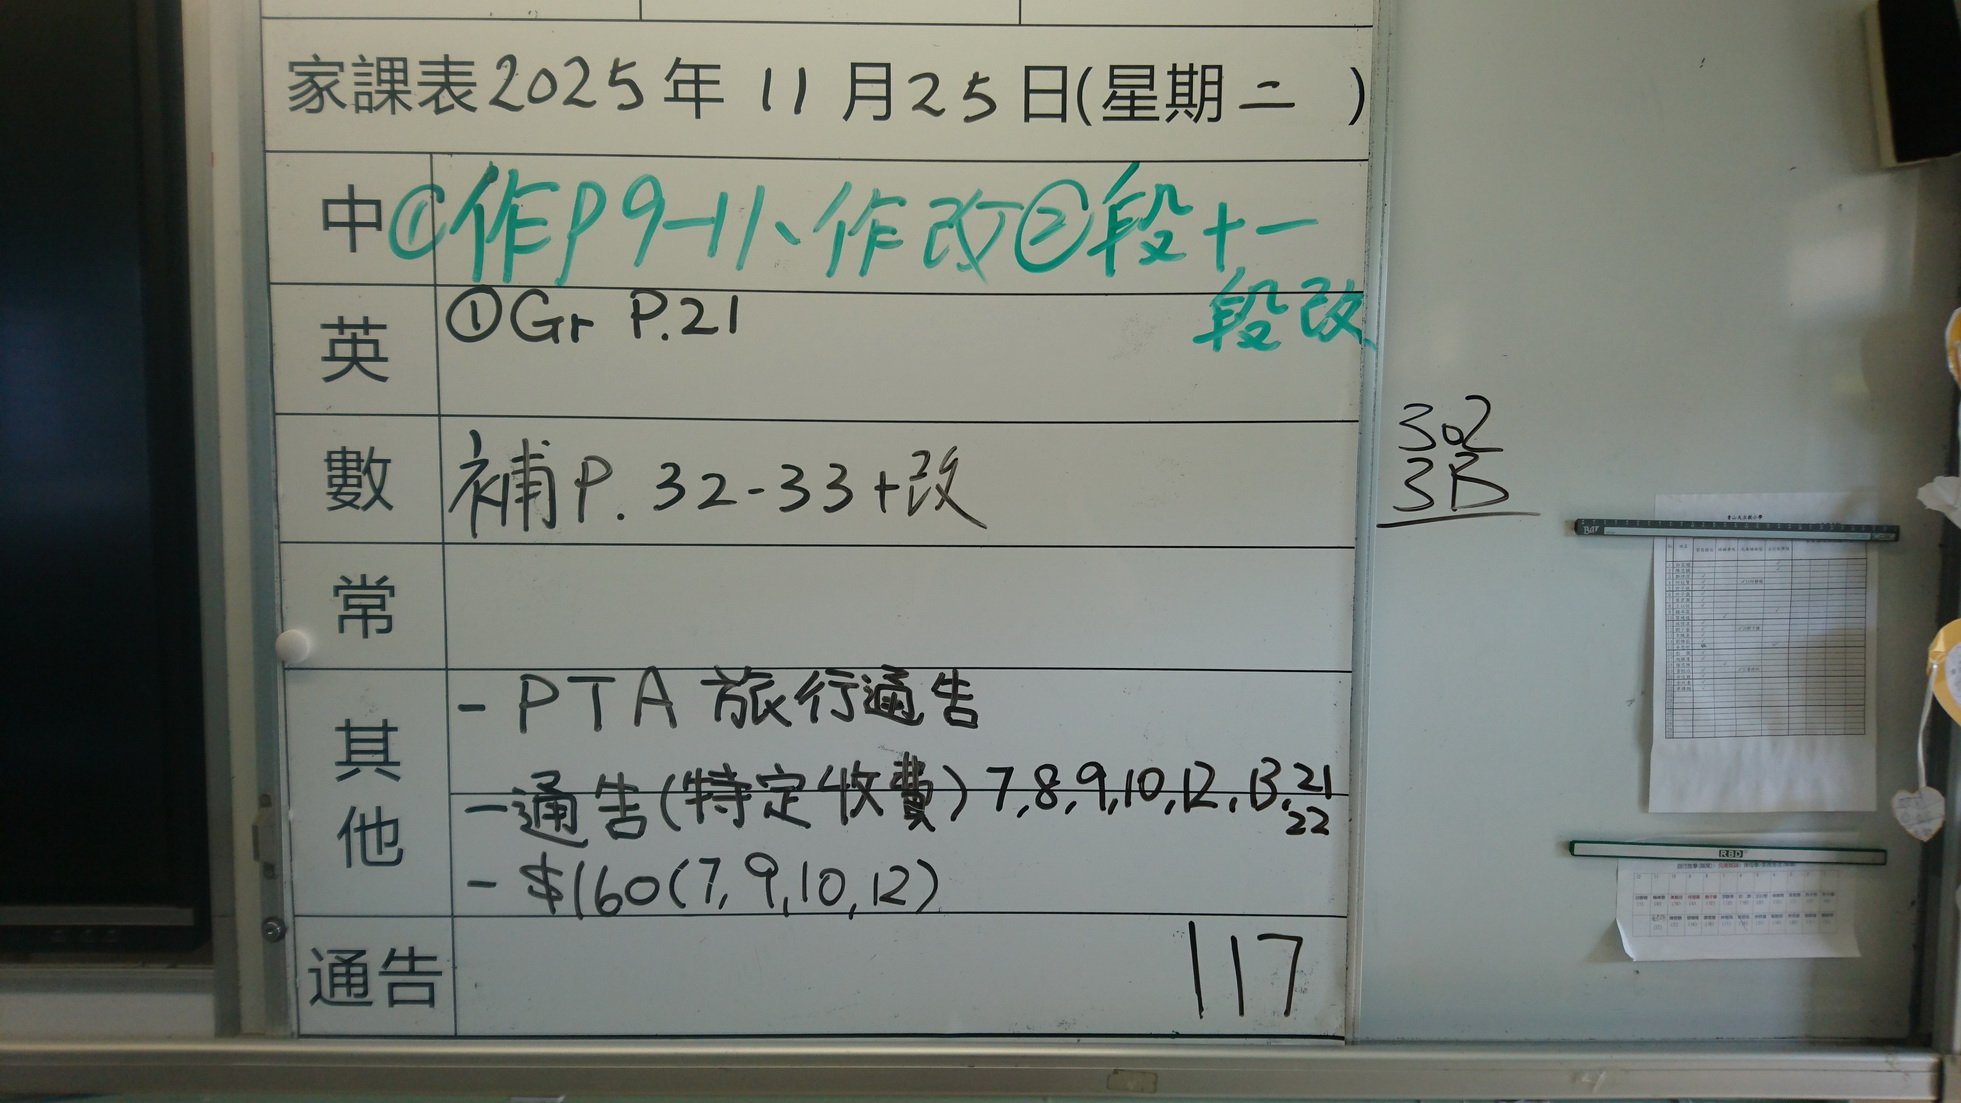 家課表2025年11月25日(星期二 )
中 ①作P9-11、作改②段十一
段改
英 ①Gr P.21
數 補P.32-33+改
常
其他 - PTA 旅行通告
- 通告(特定收費)7,8,9,10,12,13,21
22
- $160(7,9,10,12)
通告 117
302
3B
RBD